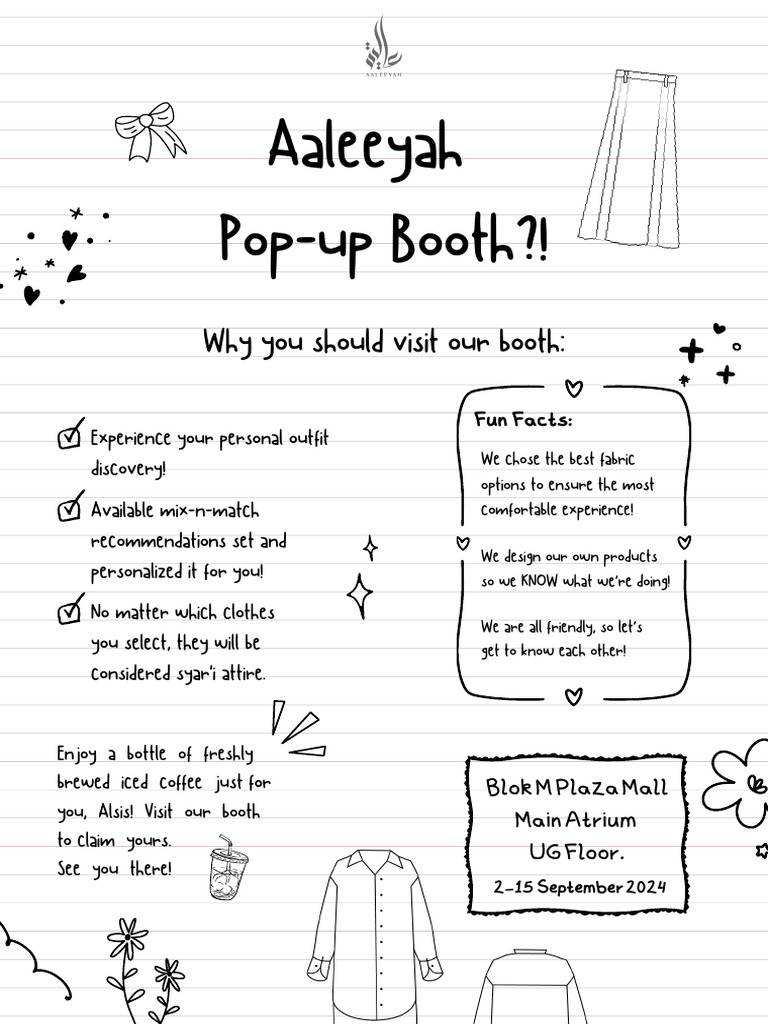 AALEEYAH
Aaleeyah
Pop-up Booth?!
Why you should visit our booth:
Experience your personal outfit
discovery!
Available mix-n-match
recommendations set and
personalized it for you!
No matter which clothes
you select, they will be
considered syar'i attire.
Fun Facts:
We chose the best fabric
options to ensure the most
comfortable experience!
We design our own products
so we KNOW what we're doing!
We are all friendly, so let's
get to know each other!
Enjoy a bottle of freshly
brewed iced coffee just for
you, Alsis! Visit our booth
to claim yours.
See you there!
Blok M Plaza Mall
Main Atrium
UG Floor.
2-15 September 2024